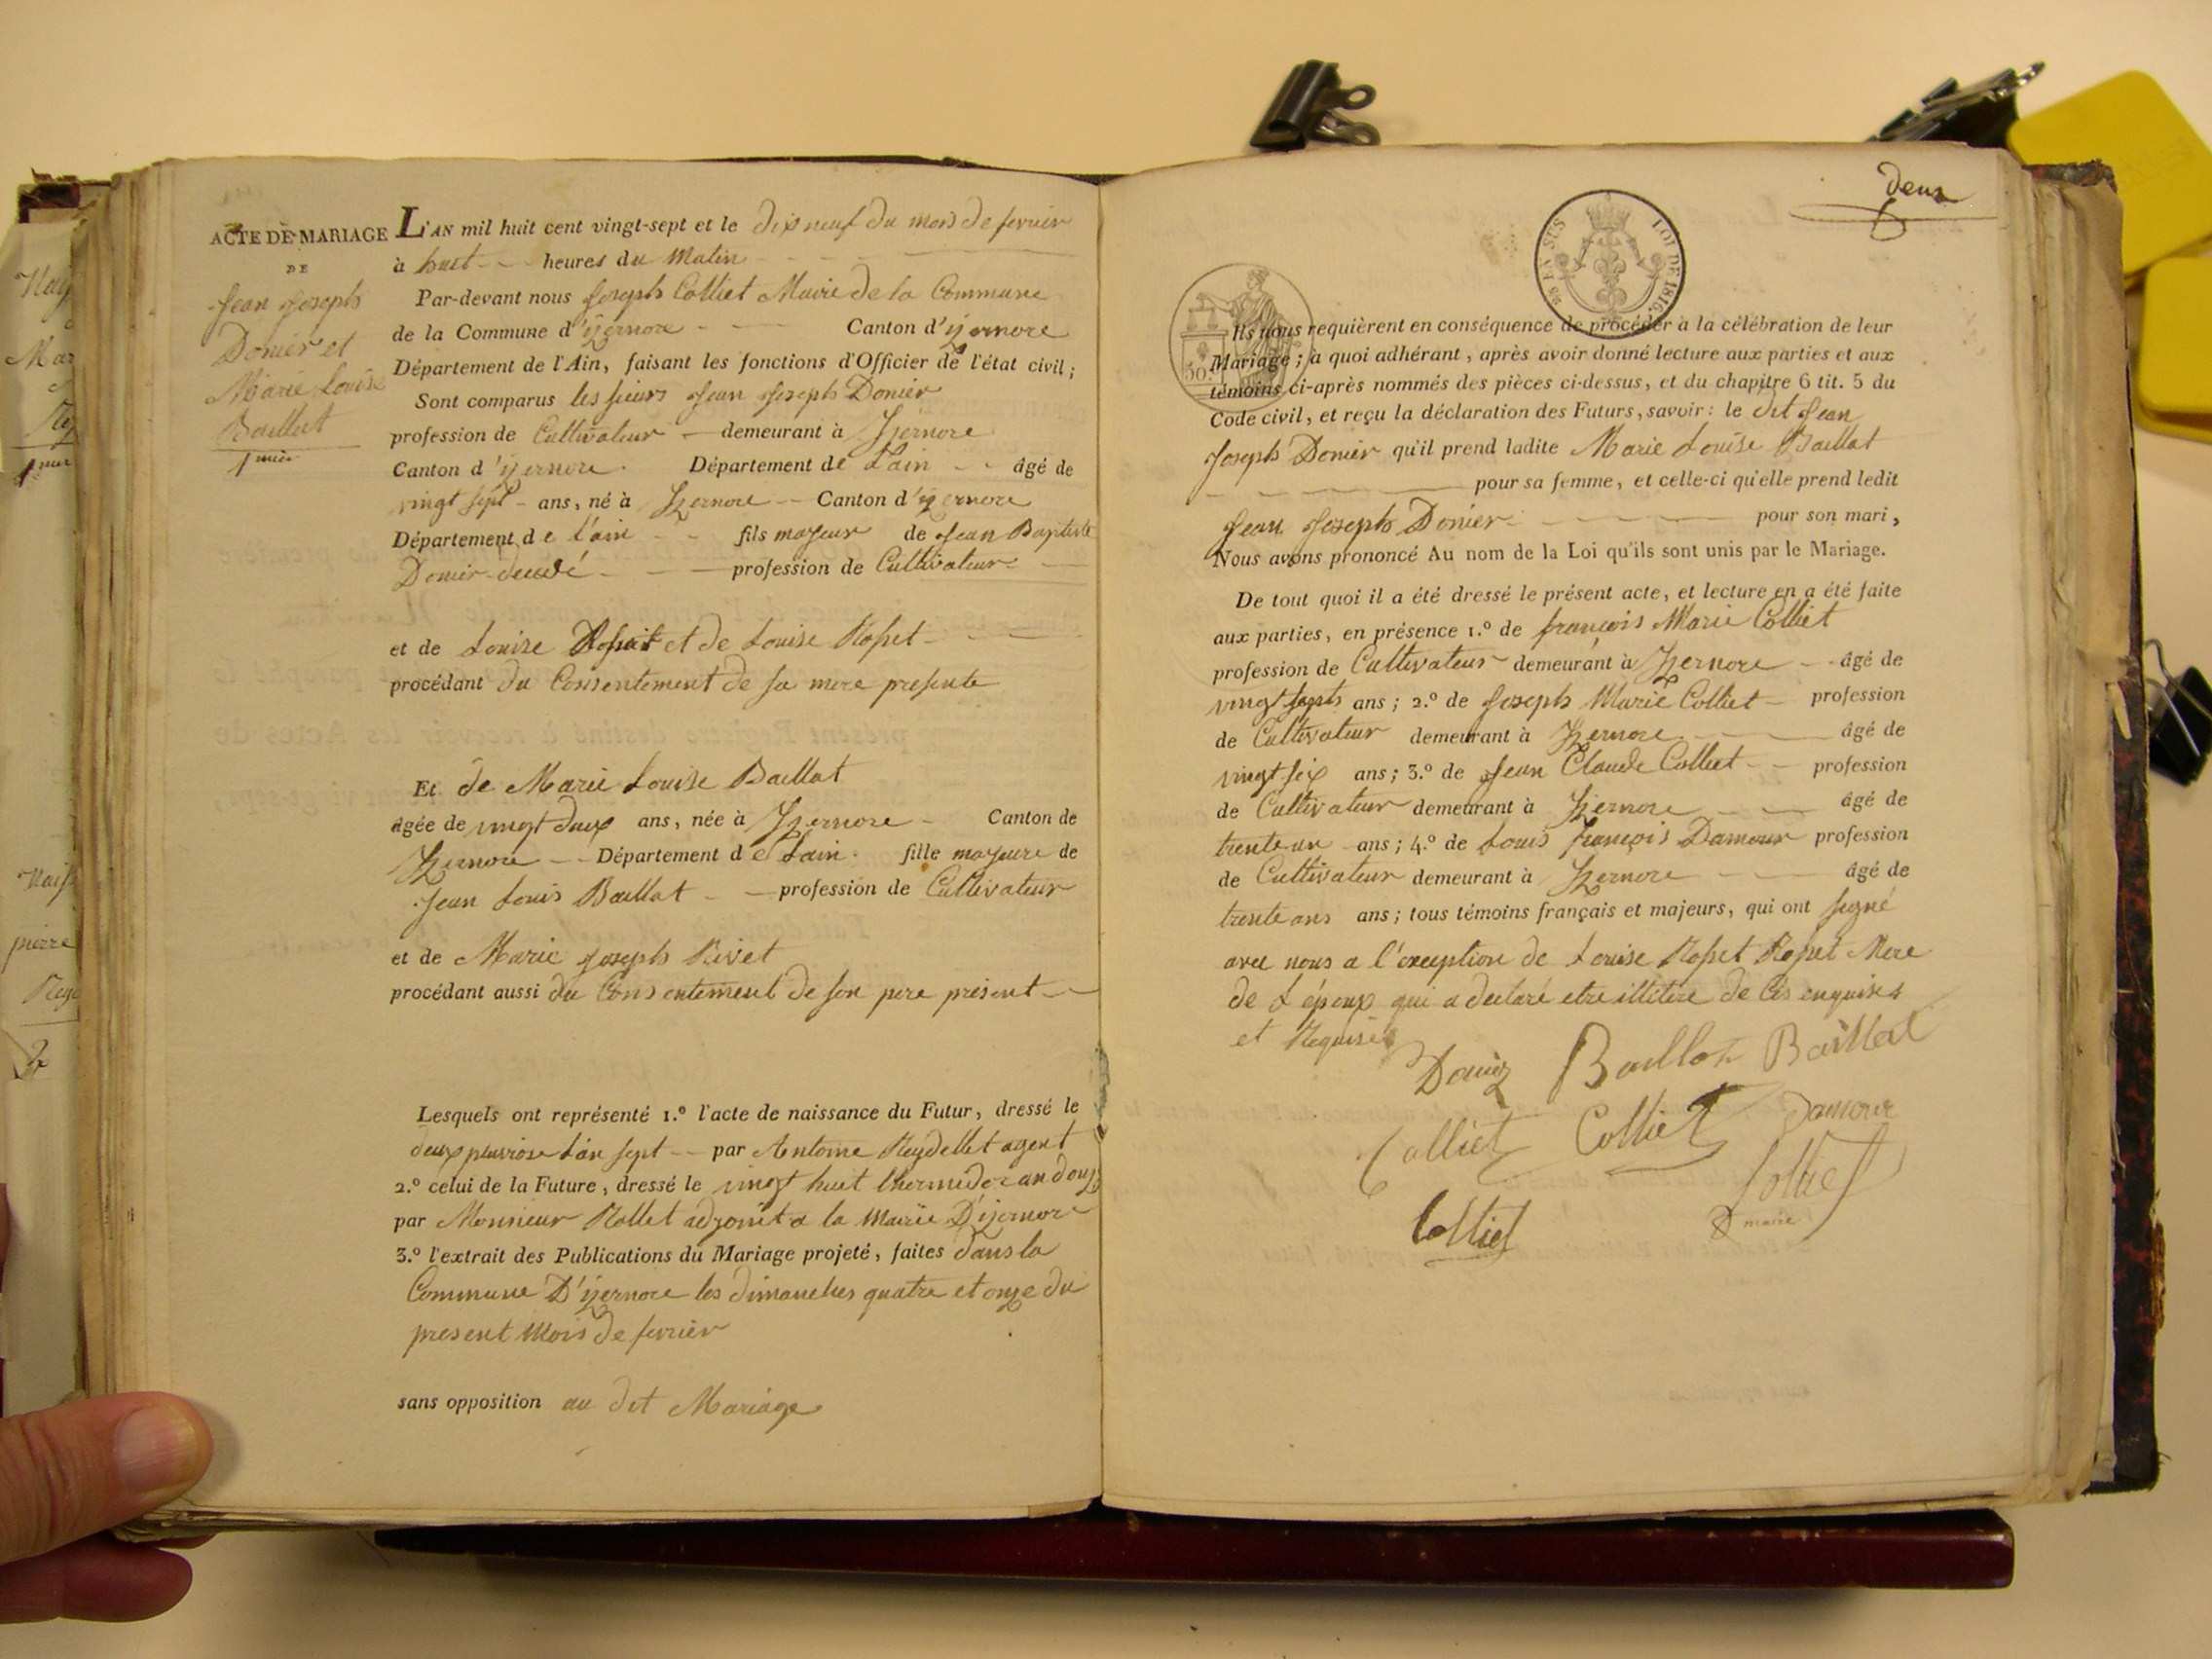 deux
ACTE DE MARIAGE
DE
Jean Joseph
Donier et
Marie Louise
Baillat
1
L'AN mil huit cent vingt-sept et le dix neuf du mois de fevrier
à huit heures du Matin
Par-devant nous Joseph Colliet Maire de la Commune
de la Commune d'izernore Canton d'izernore
Département de l'Ain, faisant les fonctions d'Officier de l'état civil;
Sont comparus les sieurs Jean Joseph Donier
profession de Cultivateur demeurant à Izernore
Canton d'izernore Département de Lain âgé de
vingt sept ans, né à Izernore Canton d'izernore
Département de l'ain fils majeur de Jean Baptiste
Donier profession de Cultivateur
et de Louise et de Louise Rosset
procédant du Consentement de sa mere presente
Et de Marie Louise Baillat
âgée de vingt deux ans, née à Izernore Canton de
Izernore Département de Lain fille majeure de
Jean Louis Baillat profession de Cultivateur
et de Marie Joseph Rivet
procédant aussi du Consentement de son pere présent
Lesquels ont représenté 1.º l'acte de naissance du Futur, dressé le
deux pluviose Lan sept par Antoine Reydellet agent
2.º celui de la Future, dressé le vingt huit thermidor an douze
par Monsieur Rollet adjoint a la Mairie D'izernore
3.º l'extrait des Publications du Mariage projeté, faites dans la
Commune D'izernore les dimanches quatre et onze du
present Mois de fevrier
sans opposition au dit Mariage
LOI DE 1816.
50
Ils nous requièrent en conséquence de procéder à la célébration de leur
Mariage; à quoi adhérant, après avoir donné lecture aux parties et aux
témoins ci-après nommés des pièces ci-dessus, et du chapitre 6 tit. 5 du
Code civil, et reçu la déclaration des Futurs, savoir: le dit Jean
Joseph Donier qu'il prend ladite Marie Louise Baillat
pour sa femme, et celle-ci qu'elle prend ledit
Jean Joseph Donier pour son mari,
Nous avons prononcé Au nom de la Loi qu'ils sont unis par le Mariage.
De tout quoi il a été dressé le présent acte, et lecture en a été faite
aux parties, en présence 1.º de françois Marie Colliet
profession de Cultivateur demeurant à Izernore âgé de
vingt septs ans; 2.º de Joseph Marie Colliet profession
de Cultivateur demeurant à Izernore âgé de
vingt six ans; 3.º de Jean Claude Colliet profession
de Cultivateur demeurant à Izernore âgé de
trente un ans; 4.º de Louis françois Damour profession
de Cultivateur demeurant à Izernore âgé de
trente ans ans; tous témoins français et majeurs, qui ont signé
avec nous a l'exception de Louise Rosset Rosset Mere
de Lépoux qui a declaré etre illitere de Ces enquises
et Requises
Donier Baillat Baillat
Colliet Colliet Damour
Colliet Colliet
maire